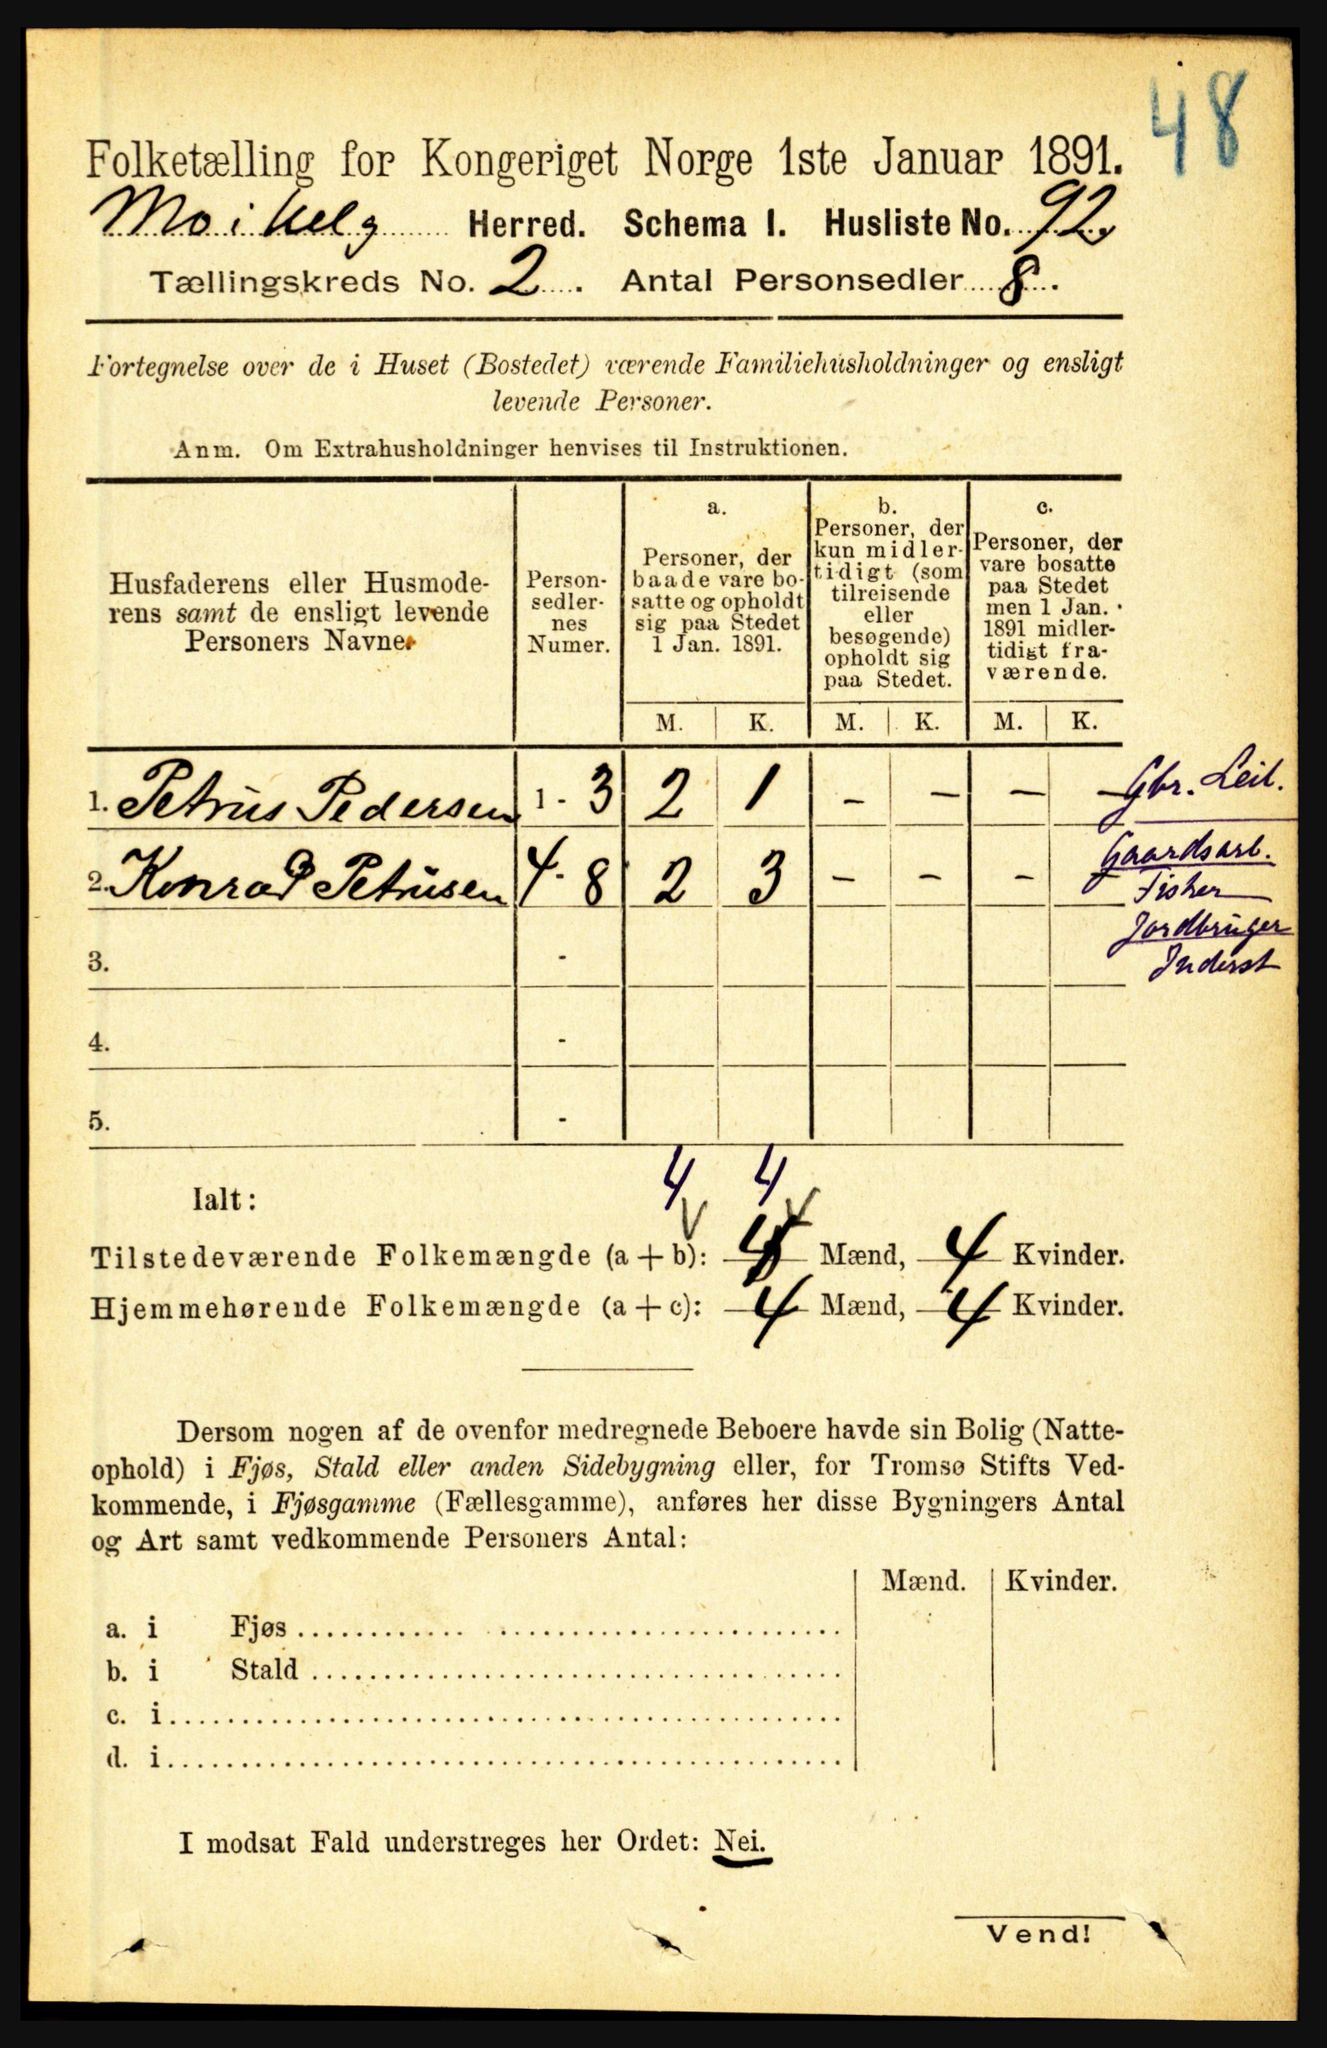 48
Folketælling for Kongeriget Norge 1ste Januar 1891.
Mo i Helg Herred. Schema I. Husliste No. 92.
Tællingskreds No. 2. Antal Personsedler 8.
Fortegnelse over de i Huset (Bostedet) værende Familiehusholdninger og ensligt
levende Personer.
Anm. Om Extrahusholdninger henvises til Instruktionen.
Husfaderens eller Husmode-
rens samt de ensligt levende
Personers Navne.
Person-
sedler-
nes
Numer.
a.
Personer, der
baade vare bo-
satte og opholdt
sig paa Stedet
1 Jan. 1891.
b.
Personer, der
kun midler-
tidigt (som
tilreisende
eller
besøgende)
opholdt sig
paa Stedet.
c.
Personer, der
vare bosatte
paa Stedet
men 1 Jan.
1891 midler-
tidigt fra-
værende.
M. K. M. K. M. K.
1. Petrus Pedersen 1 - 3 2 1 - - - - Gbr. Leil.
2. Konrad Petrusen 4 - 8 2 3 - - - - Gaardsarb.
Fisker
Jordbruger
Inderst
3. -
4. -
5. -
4 4
Ialt:
Tilstedeværende Folkemængde (a + b): 4 Mænd, 4 Kvinder.
Hjemmehørende Folkemængde (a + c): 4 Mænd, 4 Kvinder.
Dersom nogen af de ovenfor medregnede Beboere havde sin Bolig (Natte-
ophold) i Fjøs, Stald eller anden Sidebygning eller, for Tromsø Stifts Ved-
kommende, i Fjøsgamme (Fællesgamme), anføres her disse Bygningers Antal
og Art samt vedkommende Personers Antal:
Mænd. Kvinder.
a. i Fjøs
b. i Stald
c. i
d. i
I modsat Fald understreges her Ordet: Nei.
Vend!